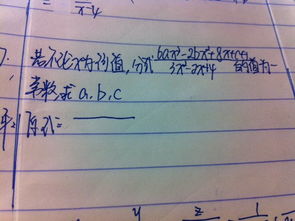 x-4
7. 若不论x为何值,分式 6ax³-2bx²+8x+c+1 / 3x²-2x+4 的值为一
常数,求a、b、c
解:原式=
y z 1